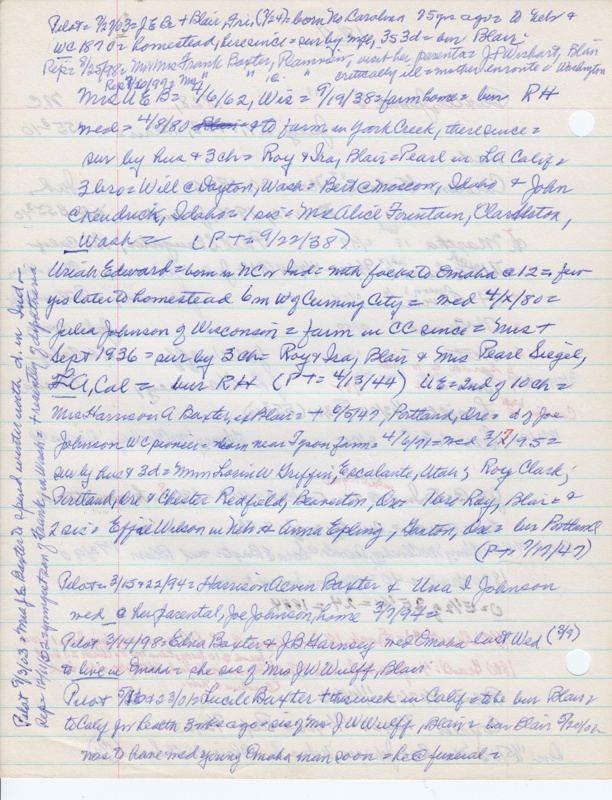 Pilot = 7/2/03 = J E Bx + Blair, Fri (7/24) = born No Carolina 75 yrs ago = to Neb &
WC 1870 = homestead, here since = sur by wife, 3s 3d = bur Blair =
Rep = 8/25/98 = Mr & Mrs Frank Baxter, Plainview, visit her parents = J P Wishart, Blair
critically ill = mother enroute = Washington
Mrs U E B = 4/6/62, Wis = 9/19/38 = farm home = bur R H
med = 4/8/80 & to farm in York Creek, there since =
sur by hus & 3 ch = Roy & Ira, Blair = Pearl in LA Calif =
3 bro = Will @ Dayton, Wash = Bert @ Moscow, Idaho & John
@ Kendrick, Idaho = 1 sis = Mrs Alice Fountain, Clarkston,
Wash = (P-T = 9/22/38)
Uriah Edward = born in NC or Ind = with folks to Omaha @ 12 = few
yrs later to homestead 6 m W of Cuming City = med 4/x/80 =
Julia Johnson of Wisconsin = farm in CC since = Mrs +
Sept 1936 = sur by 3 ch = Roy & Ira, Blair & Mrs Pearl Siegel,
LA, Cal = bur R H (P-T = 4/13/44) U E = 2nd of 10 ch =
Mrs Harrison A Baxter, ex Blair = + 6/5/47, Portland, Ore = d of Joe
Johnson WC pioneer = born near Tyson farm = 4/6/71 = med 3/7/95 =
sur by hus & 3 d = Mmn Lorin W Griffin, Escalante, Utah; Roy Clark;
Portland, Ore & Chester Redfield, Beaverton, Ore = bro Ray, Blair = &
2 sis = Effie Wilson in Neb & Anna Epling, Gaston, Ore = bur Portland
(P-T = 7/17/47)
Pilot = 3/15 & 22/94 = Harrison Baxter & Una I Johnson
med @ her parental, Joe Johnson, home 3/7/94 =
Pilot 3/14/98 = Edna Baxter & J B Harnsey med Omaha last Wed (3/9)
to live in Omaha = she sis of Mrs J W Wulff, Blair
Pilot 23/01 = Lucile Baxter + this week in Calif = to be bur Blair =
to Calif for health 3 mks ago = sis of Mrs J W Wulff, Blair = bur Blair
was to have med young Omaha man soon = he @ funeral =
Pilot 9/3/03 = Mrs J E Baxter to spend winter with d. in Ind =